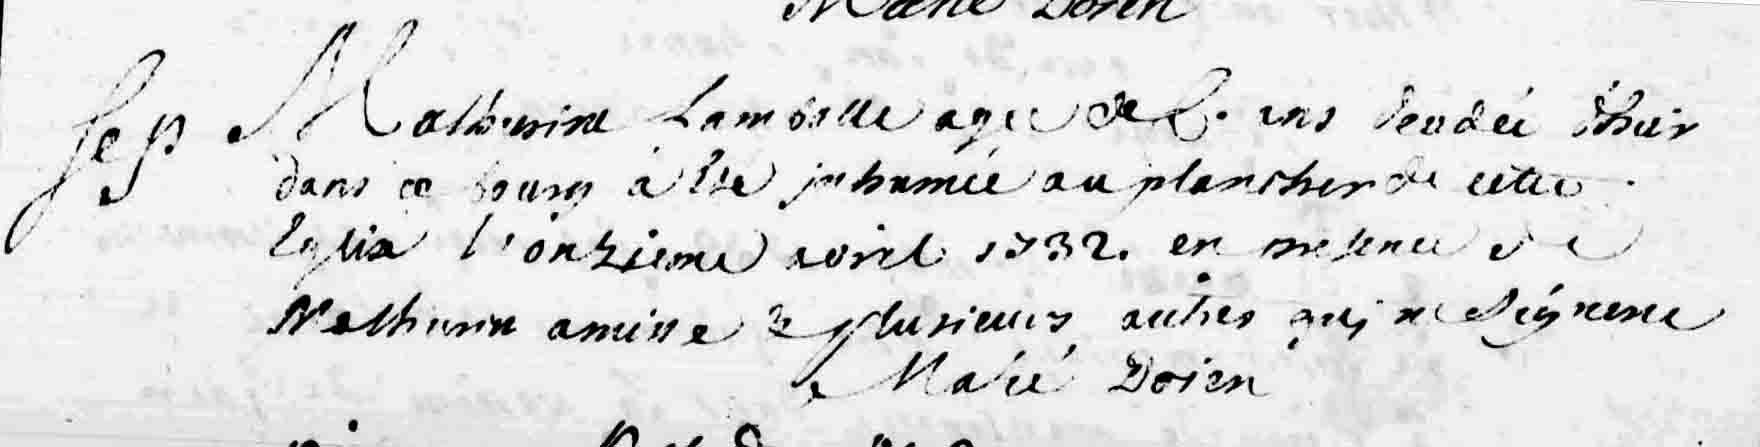 Maré Doien
Sep Mathurine Lamballe agee de ans decedée d'hier
dans ce bourg à Eté inhumée au plancher de cette
Eglise l'onzieme avril 1732. en presence de
Mathurin amisse & plusieurs autres qui ne Signent
Maré Doien